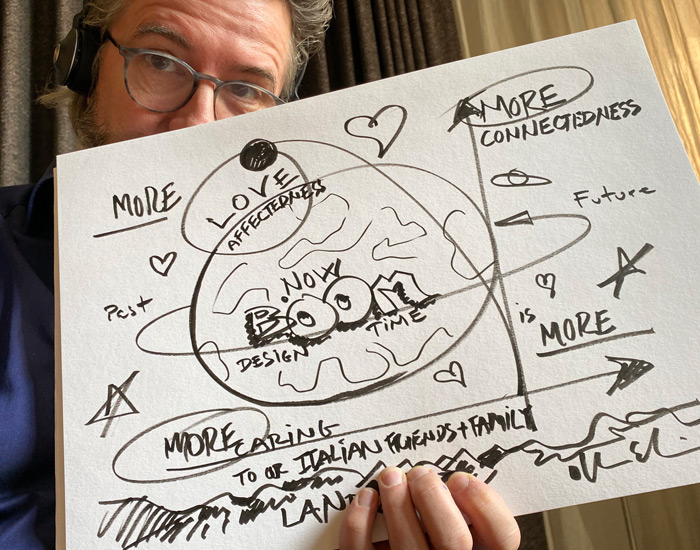 MORE
CONNECTEDNESS
MORE
LOVE
AFFECTEDNESS
Future
Past
NOW
BOOM
DESIGN TIME
is
MORE
MORE CARING
TO OR ITALIAN FRIENDS + FAMILY